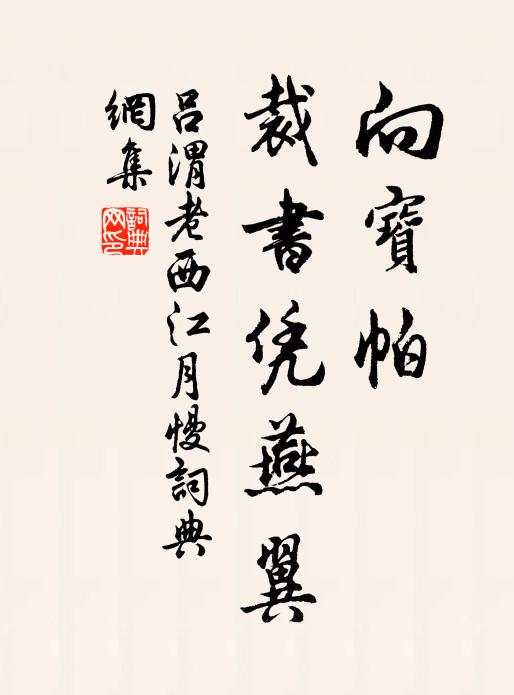 向寶帕
裁書凭燕翼
吕渭老西江月慢詞典
網集
詞典网印